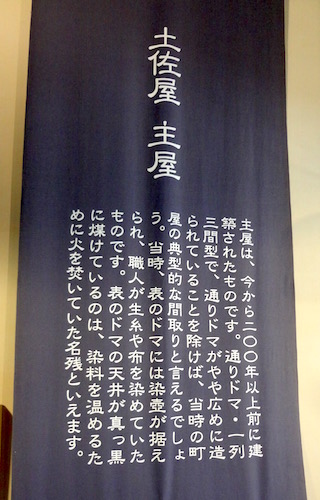 土佐屋 主屋
主屋は、今から二〇〇年以上前に建
築されたものです。通りドマ・一列
三間型で、通りドマがやや広めに造
られていることを除けば、当時の町
屋の典型的な間取りと言えるでしょ
う。当時、表のドマには染壺が据え
られ、職人が生糸や布を染めていた
ものです。表のドマの天井が真っ黒
に煤けているのは、染料を温めるた
めに火を焚いていた名残といえます。